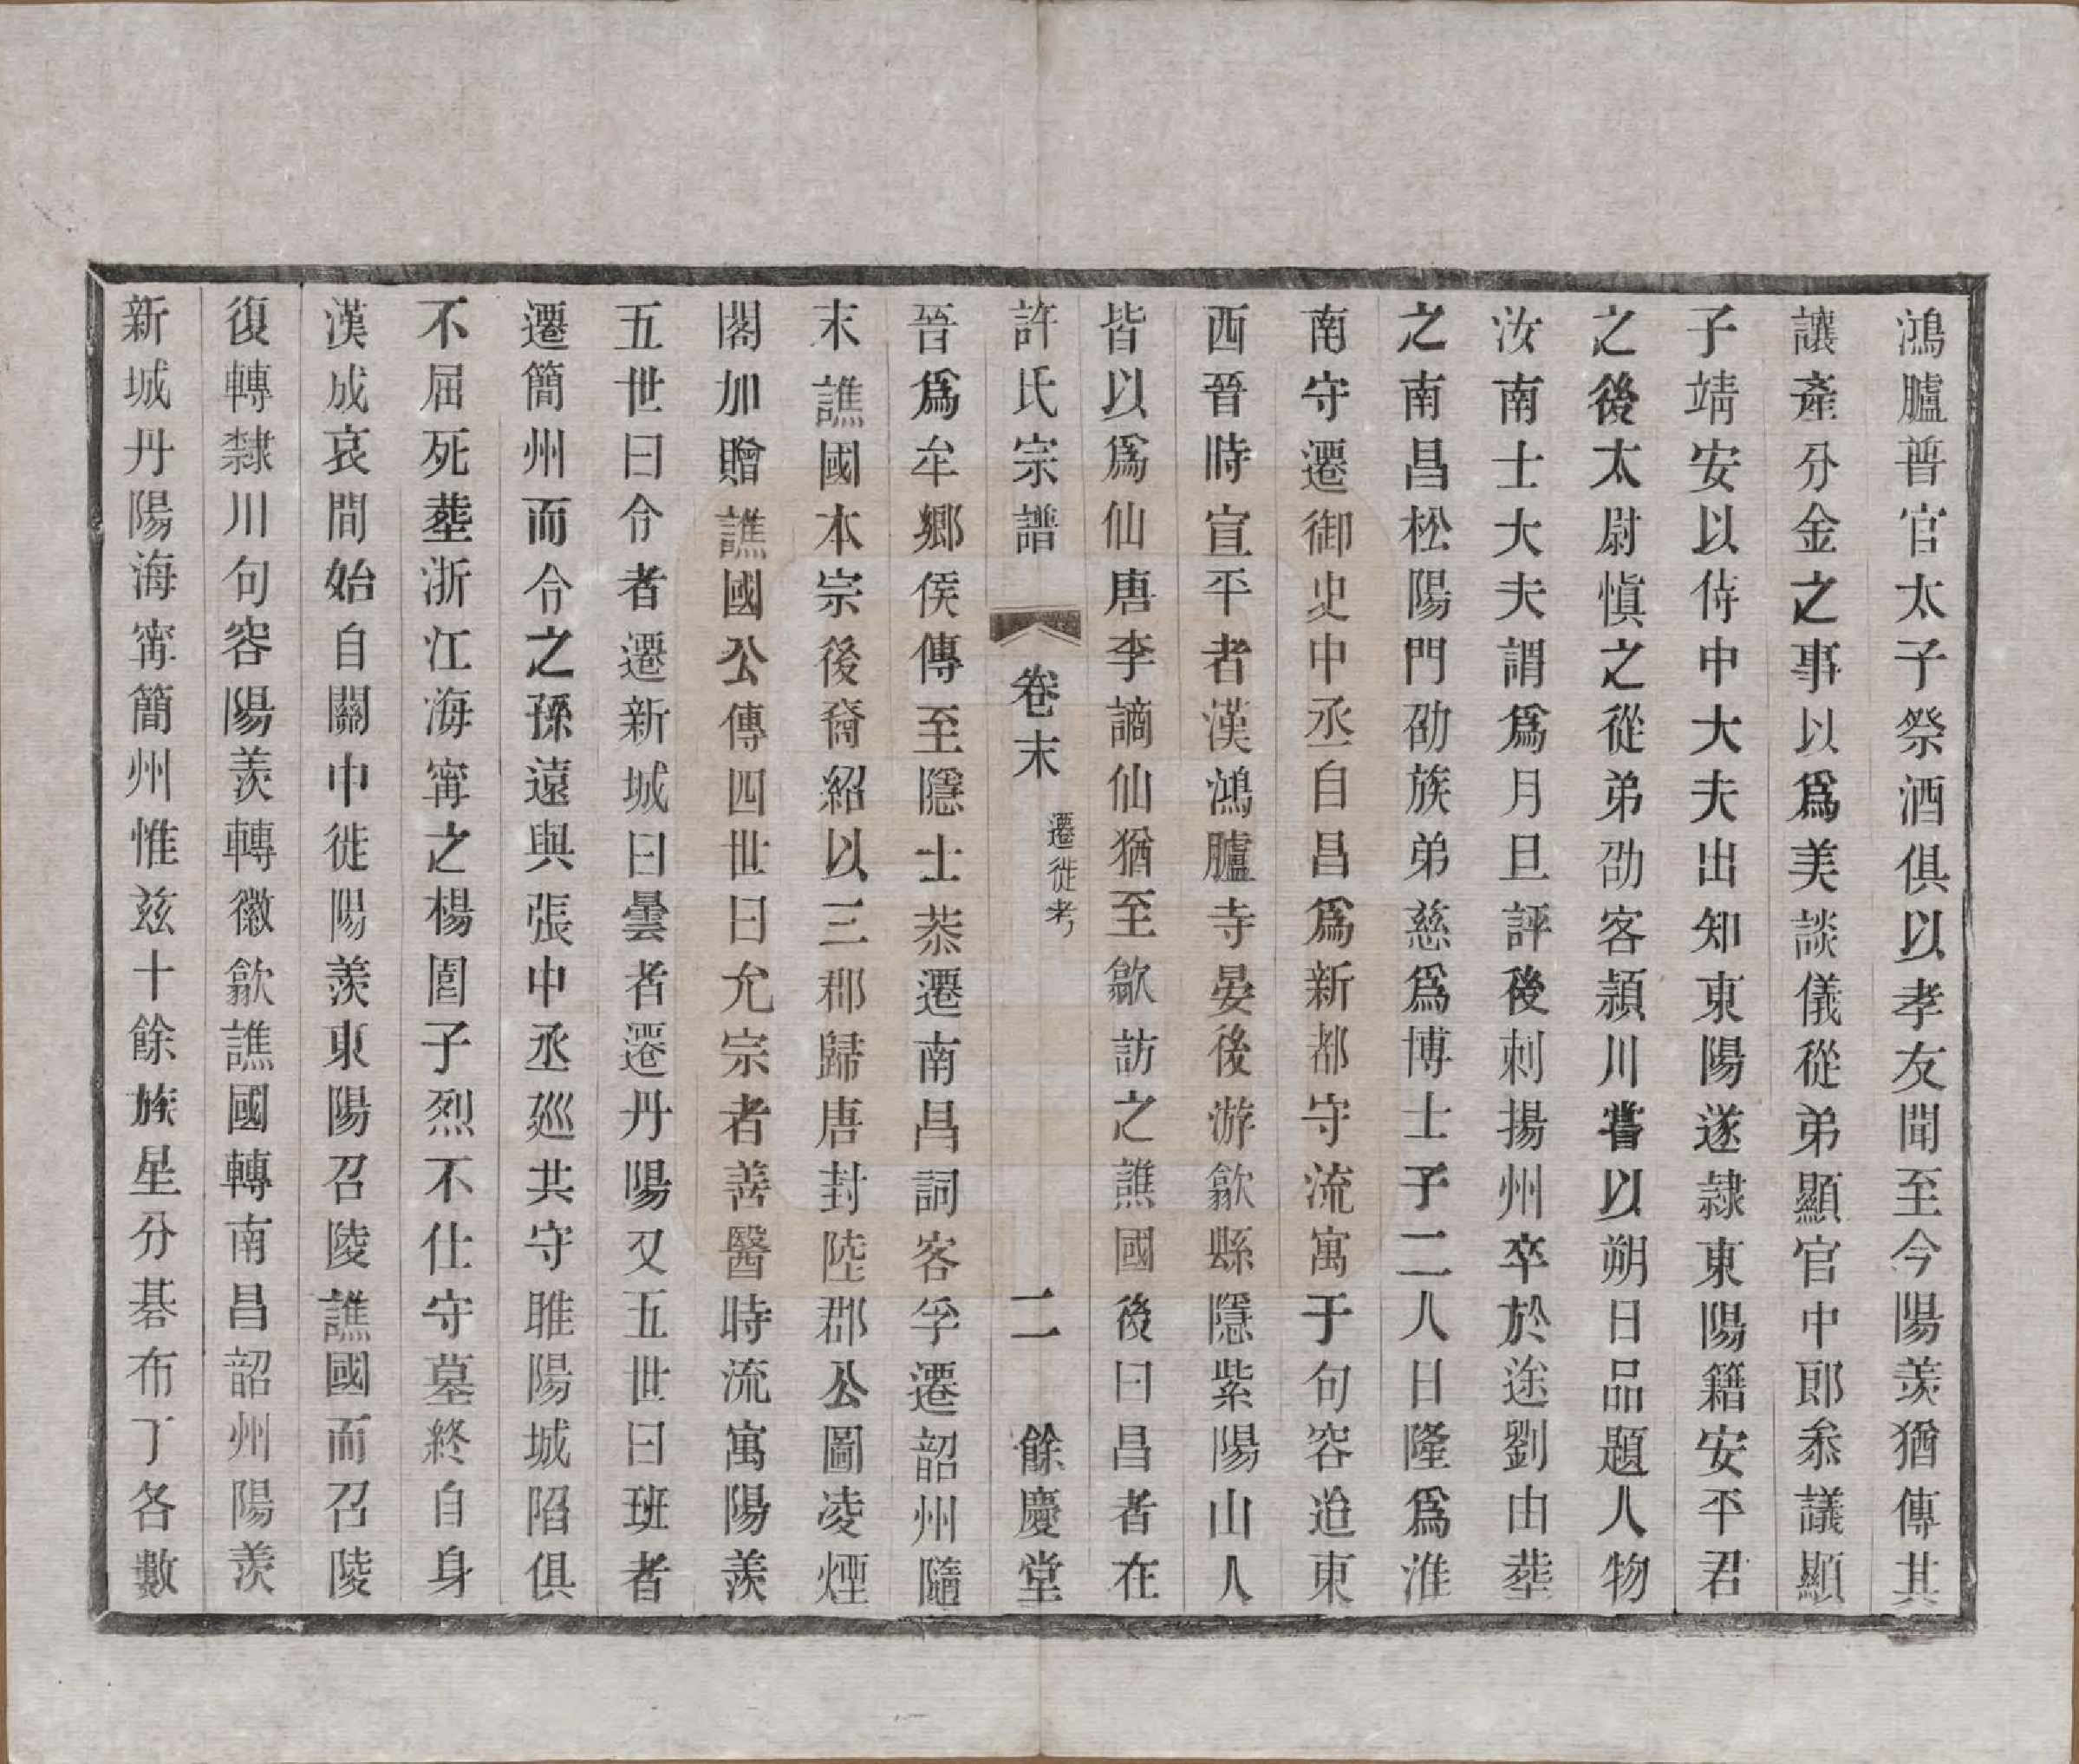 鴻臚普官太子祭酒俱以孝友聞至今陽羨猶傳其
讓產分金之事以爲美談儀從弟顯官中郎叅議顯
子靖安以侍中大夫出知東陽遂隷東陽籍安平君
之後太尉愼之從弟劭客潁川嘗以朔日品題人物
汝南士大夫謂爲月旦評後刺揚州卒於途劉由塟
之南昌松陽門劭族弟慈爲博士子二人日隆爲淮
南守遷御史中丞自昌爲新都守流寓于句容迨東
西晉時宣平者漢鴻臚寺晏後游歙縣隱紫陽山人
皆以爲仙唐李謫仙猶至歙訪之譙國後曰昌者在
許氏宗譜 卷末 遷徙考 二 餘慶堂
晉爲牟鄉侯傳至隱士恭遷南昌詞客孚遷韶州隨
末譙國本宗後裔紹以三郡歸唐封陸郡公圖凌煙
閣加贈譙國公傳四世曰允宗者善醫時流寓陽羨
五世曰令者遷新城曰曇者遷丹陽又五世曰班者
遷簡州而令之孫遠與張中丞廵共守睢陽城陷俱
不屈死塟浙江海甯之楊圊子烈不仕守墓終自身
漢成哀間始自關中徙陽羨東陽召陵譙國而召陵
復轉隸川句容陽羨轉徽歙譙國轉南昌韶州陽羨
新城丹陽海甯簡州惟兹十餘族星分碁布丁各數